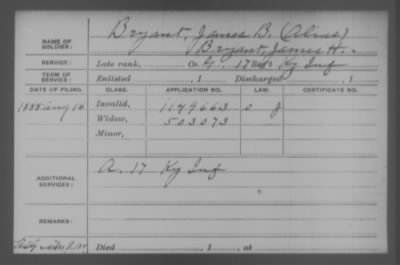 Bryant, James B. (Alias)
NAME OF SOLDIER: Bryant, James H.
SERVICE: Late rank, Co. G. 17 Reg't Ky Inf
TERM OF SERVICE: Enlisted , 1 Discharged , 1
DATE OF FILING. CLASS. APPLICATION NO. LAW. CERTIFICATE NO.
1888 Aug 16 Invalid, 1149663
Widow, 503073
Minor,
ADDITIONAL SERVICES: A. 17 Ky Inf
REMARKS:
Died , 1 , at